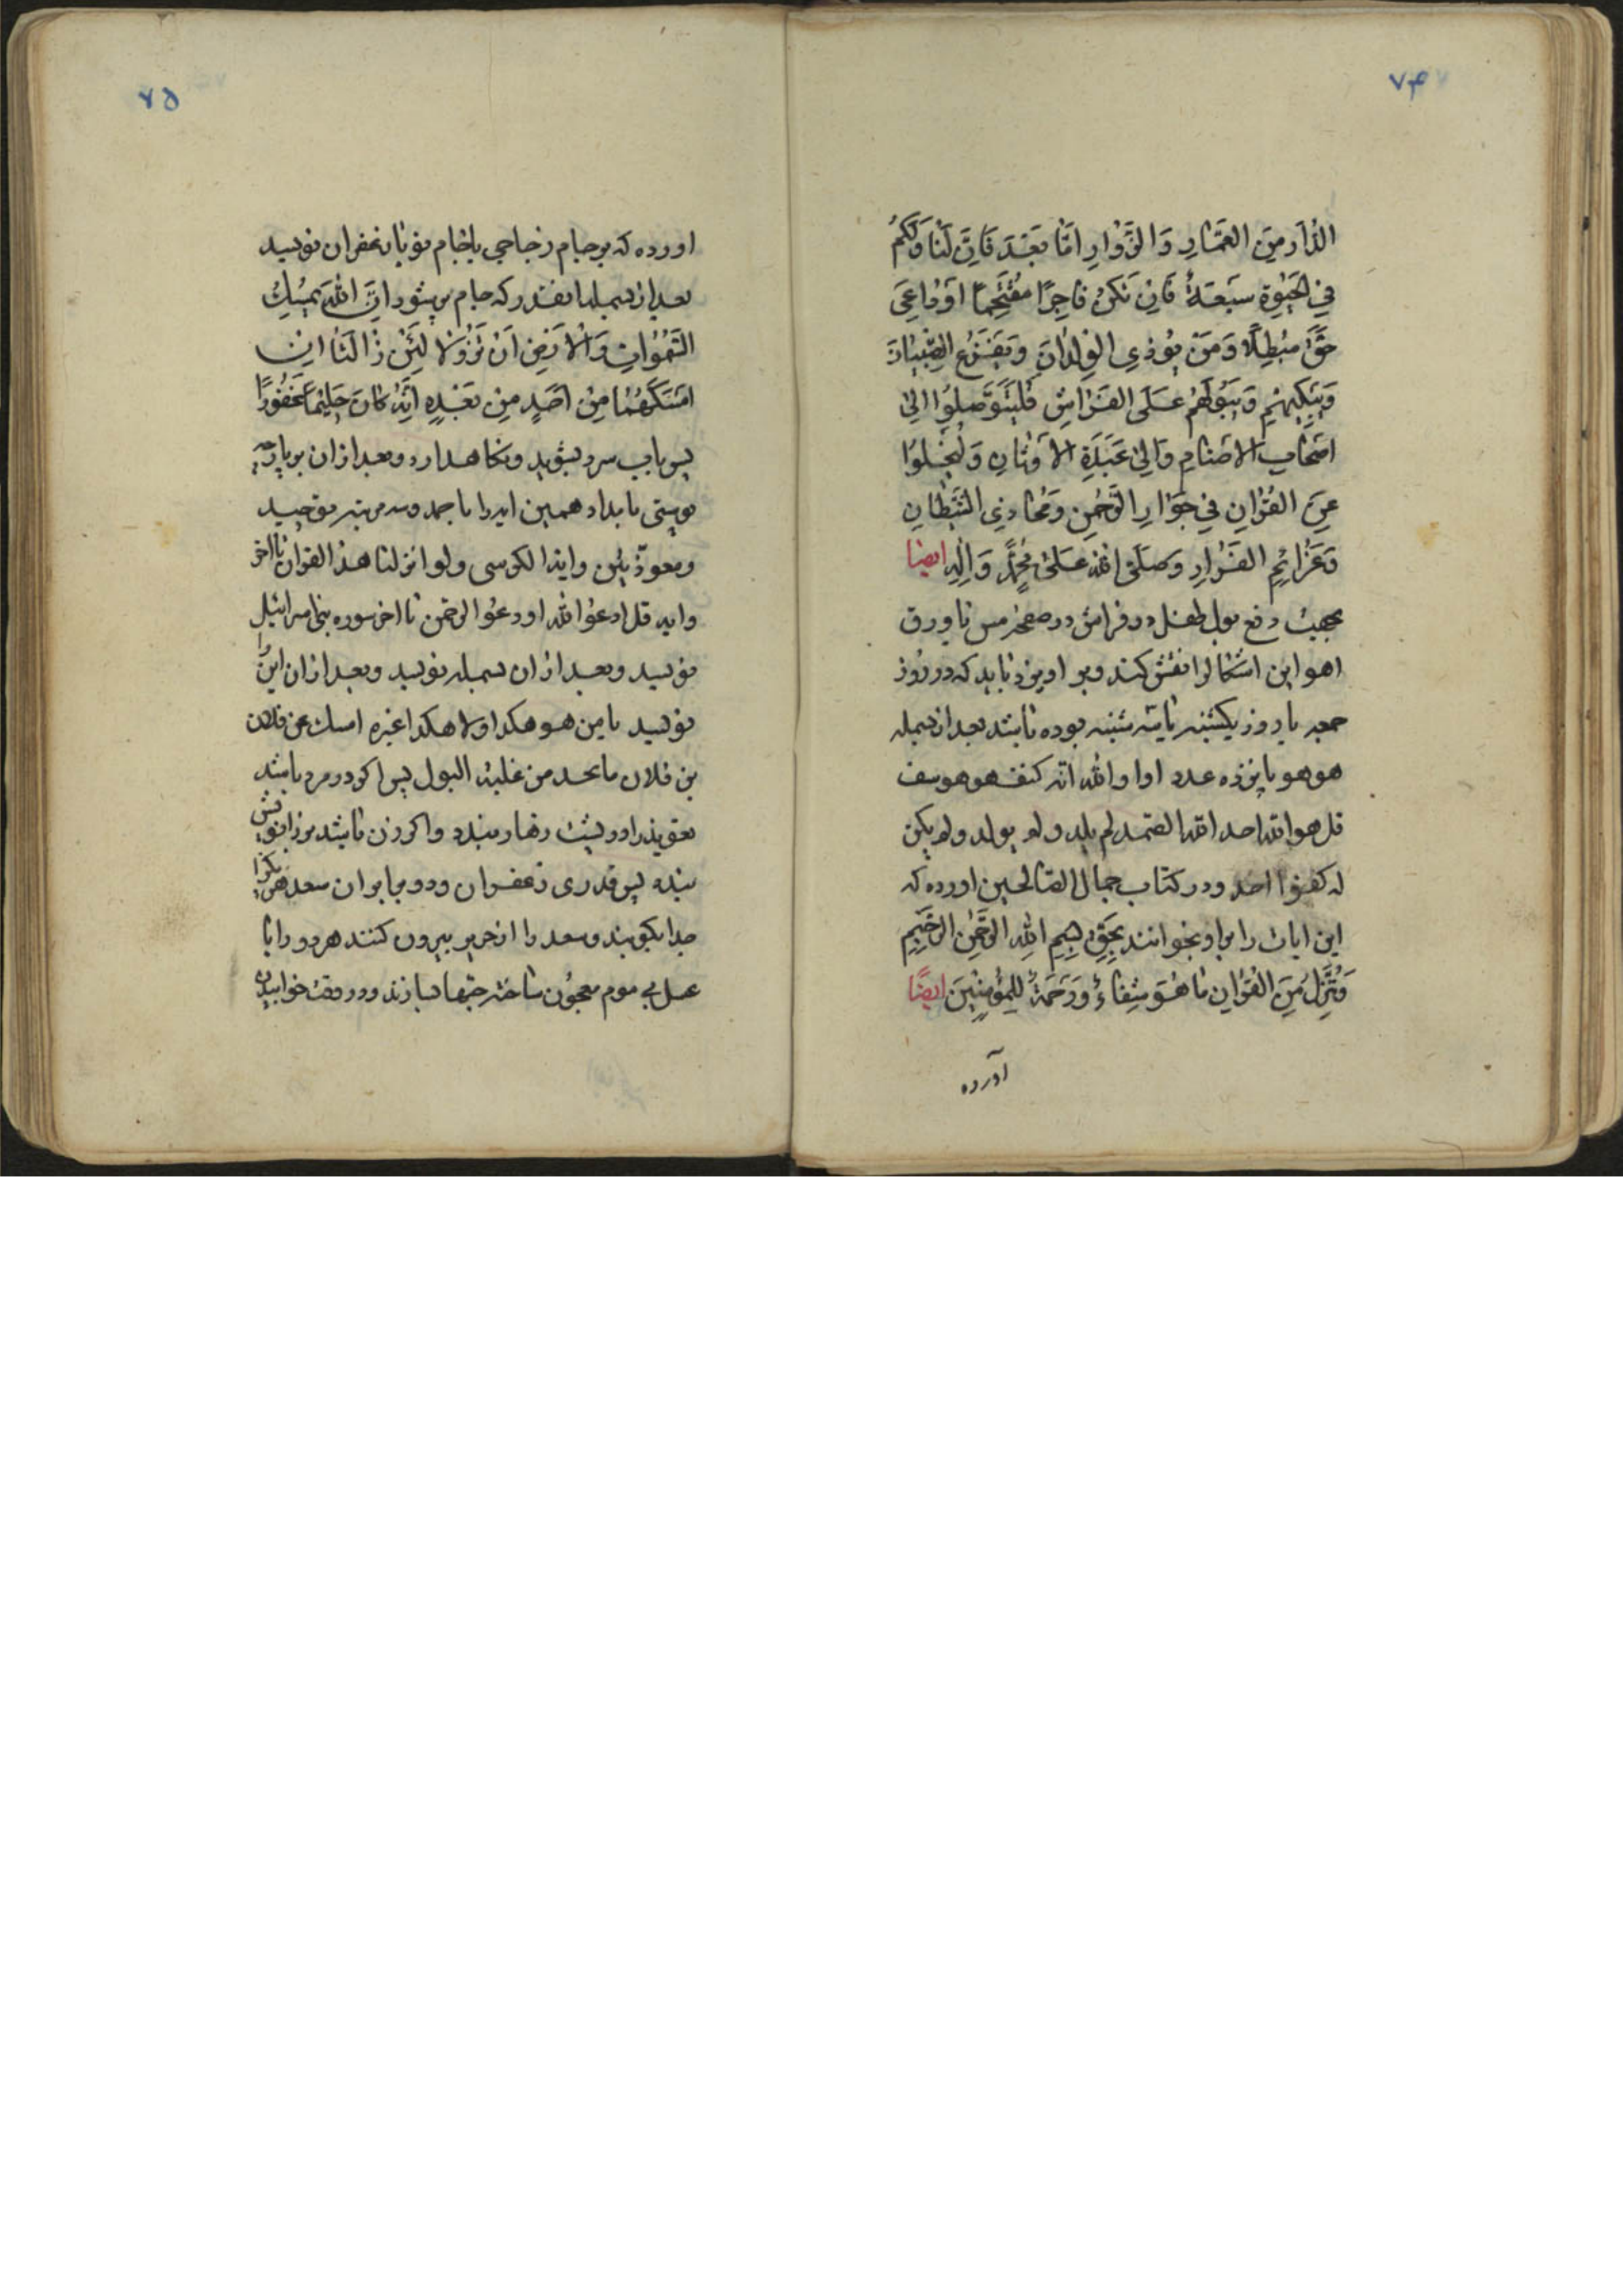 ۷۴
الدّٰارِ مِنَ العُمّٰارِ وَالزُّوّٰارِ اَمّٰا بَعْدَ فَاِنَّ لَنٰا وَلَكُمْ
فِي الحَيٰوةِ سَعَةً فَاِنْ تَكُنْ فٰاجِرًا مُقْتَحِمًا اَوْ دٰاعِيَ
حَقٍّ مُبْطِلًا وَمَنْ يُؤذِي الوِلْدٰانَ وَيُفَزِّعُ الصِّبْيٰانَ
وَيُبْكِيهِمْ وَيُبَوِّلُهُمْ عَلَى الفَرٰاشِ فَليَتَوَصَّلُوا اِلىٰ
اَصْحٰابِ الاَصْنٰامِ وَاِلىٰ عَبَدَةِ الاَوْثٰانِ وَلْيُخَلُّوا
عَنِ القُرْاٰنِ فِي جَوٰارِ الرَّحْمٰنِ وَمَحٰاذِي الشَّيْطٰانِ
وَعَزٰائِمِ القُرْاٰنِ وَصَلَّى اللّٰه عَلىٰ مُحَمَّدٍ وَاٰلِهِ ايضا
بجهت دفع بول طفل در فراش در صفحه مس يا ورق
اهو اين اشكالرا نقش كند وبر اويزد بايد كه در روز
جمعه يا روز يكشنبه يا سه شنبه بوده باشد بعد از بسمله
هو هو پانزده عدد اوا والله انه كنف هو هو سف
قل هو الله احد الله الصّمد لم يلد ولم يولد ولم يكن
له كفوا احد ودر كتاب جمال الصّالحين اورده كه
اين ايات را براو بخوانند بِحَقِّ بِسْمِ اللّٰهِ الرَّحْمٰنِ الرَّحِيْمِ
وَنُنَزِّلُ مِنَ القُرْاٰنِ مٰا هُوَ شِفٰاءٌ وَرَحْمَةٌ لِلمُؤمِنِيْنَ ايضًا
آورده
۷۵
اورده كه برجام زجاجى يا خام نو با زعفران نويسد
بعد از بسمله انقدر كه جام پر شود اِنَّ اللّٰهَ يُمْسِكُ
السَّمٰوٰاتِ وَالْاَرْضِ اَنْ تَزُوْلٰا لَئِنْ زٰالَتٰا اِنْ
اَمْسَكَهُمٰا مِنْ اَحَدٍ مِنْ بَعْدِهِ اِنَّهُ كٰانَ حَلِيْمًا غَفُورًا
پس باب سرد بشويد ونكاهدارد وبعد ازان بر پارچه
پوستى بايد همين ايه را با حمد وسه مرتبه توحيد
ومعوّذتين واية الكرسى ولو انزلنا هذا القران تا اخر
وايه قل ادعوا الله او دعوا الرحمن تا اخر سوره بنى اسرائيل
نويسد وبعد ازان بسمله نويسد وبعد ازان اين را
نويسد يا من هو هكذا ولا هكذا غيره امسك عن فلان
بن فلان ما يجد من غلبة البول پس اكر در مرد باشد
تعويذرا در پشت زهار ببندد واكر زن باشد بر زانويش
ببندد پس قدرى زعفران ودو برابر ان سعد هر يكرا
جدا بكوبند وسعد را از حرير بيرون كنند هر دو را با
عسل بى موم معجون ساخته حبّها بسازند ودر وقت خوابيدن